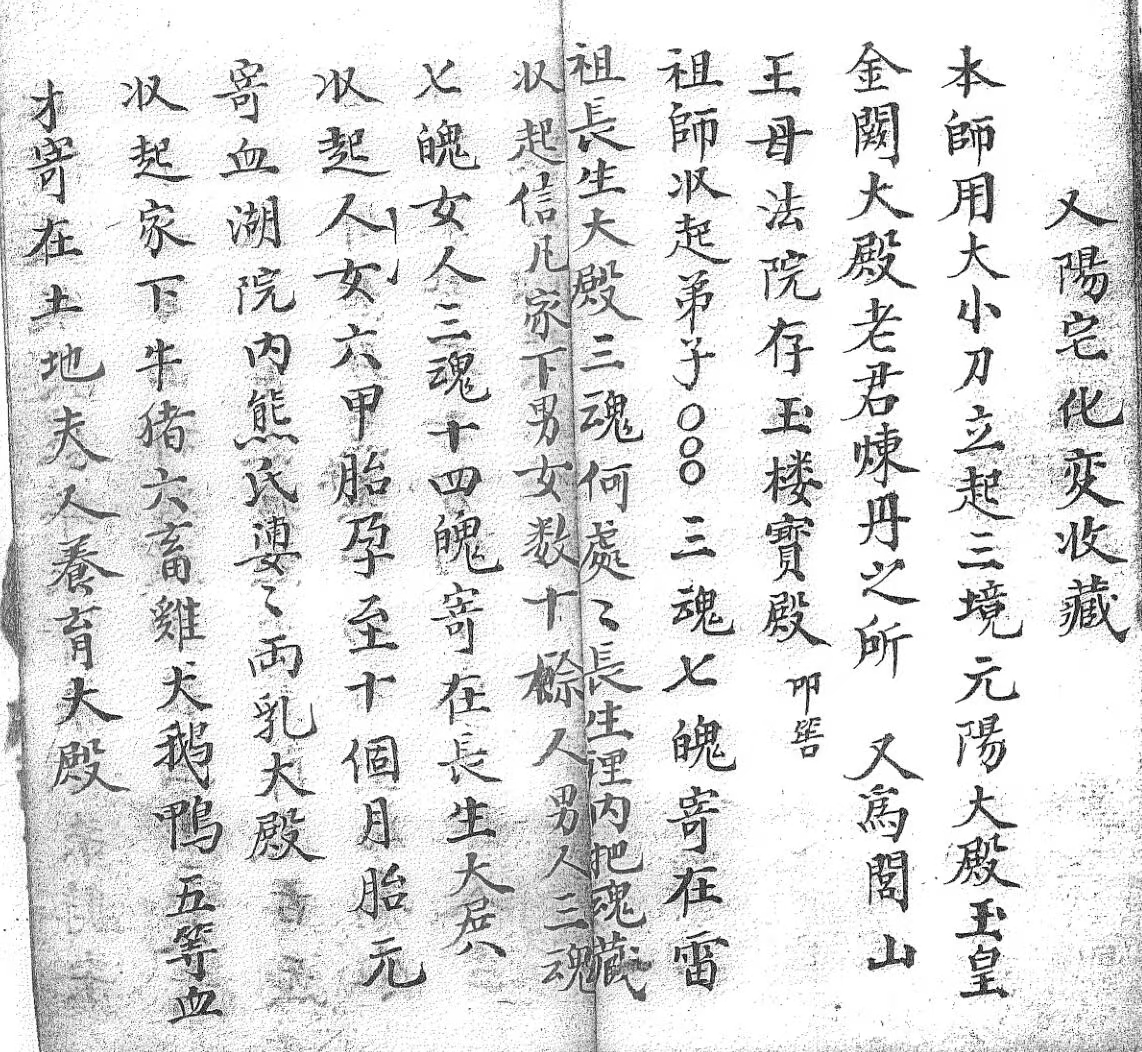 又陽宅化变收藏
本師用大小刀立起三境元陽大殿玉皇
金闕大殿老君煉丹之所 又為閭山
王母法院存玉楼寳殿 叩筈
祖師収起弟子○○○三魂七魄寄在雷
祖長生大殿三魂何處〻長生浬内把魂藏
収起信凡家下男女数十餘人男人三魂
七魄女人三魂十四魄寄在長生大
収起人女六甲胎孕至十個月胎元
寄血湖院内熊氏婆〻両乳大殿
収起家下牛猪六畜雞犬鹅鴨五等血
才寄在土地夫人養育大殿